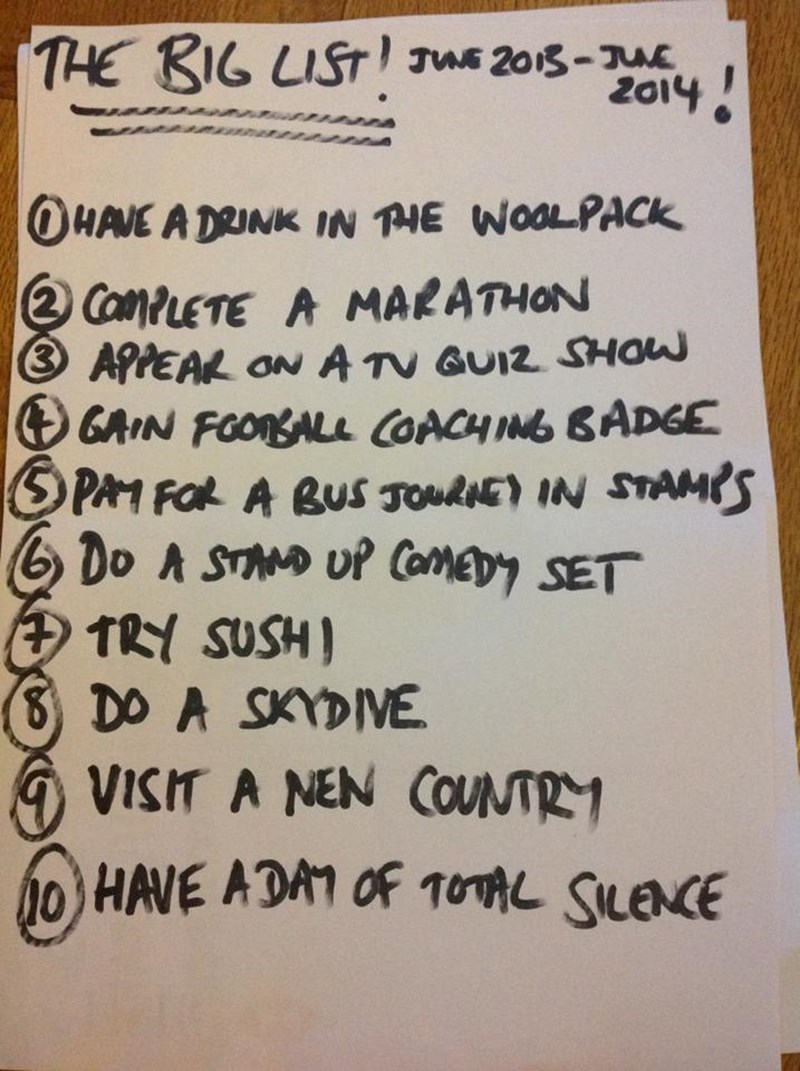 THE BIG LIST! JUNE 2013 - JUNE
2014!
① HAVE A DRINK IN THE WOOLPACK
② COMPLETE A MARATHON
③ APPEAR ON A TV QUIZ SHOW
④ GAIN FOOTBALL COACHING BADGE
⑤ PAY FOR A BUS JOURNEY IN STAMPS
⑥ DO A STAND UP COMEDY SET
⑦ TRY SUSHI
⑧ DO A SKYDIVE
⑨ VISIT A NEW COUNTRY
⑩ HAVE A DAY OF TOTAL SILENCE